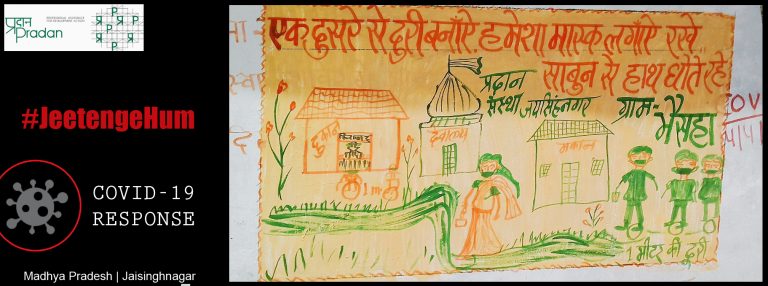 प्रदान
Pradan
PROFESSIONAL ASSISTANCE
FOR DEVELOPMENT ACTION
#JeetengeHum
COVID-19
RESPONSE
Madhya Pradesh | Jaisinghnagar
एक दुसरे से दुरी बनाऐं हमेशा मास्क लगाऐं रखे
साबुन से हाथ धोते रहे
प्रदान
संस्था जयसिंहनगर
ग्राम- भैसहा
दुकान
देवालय
मकान
1 मीटर की दूरी